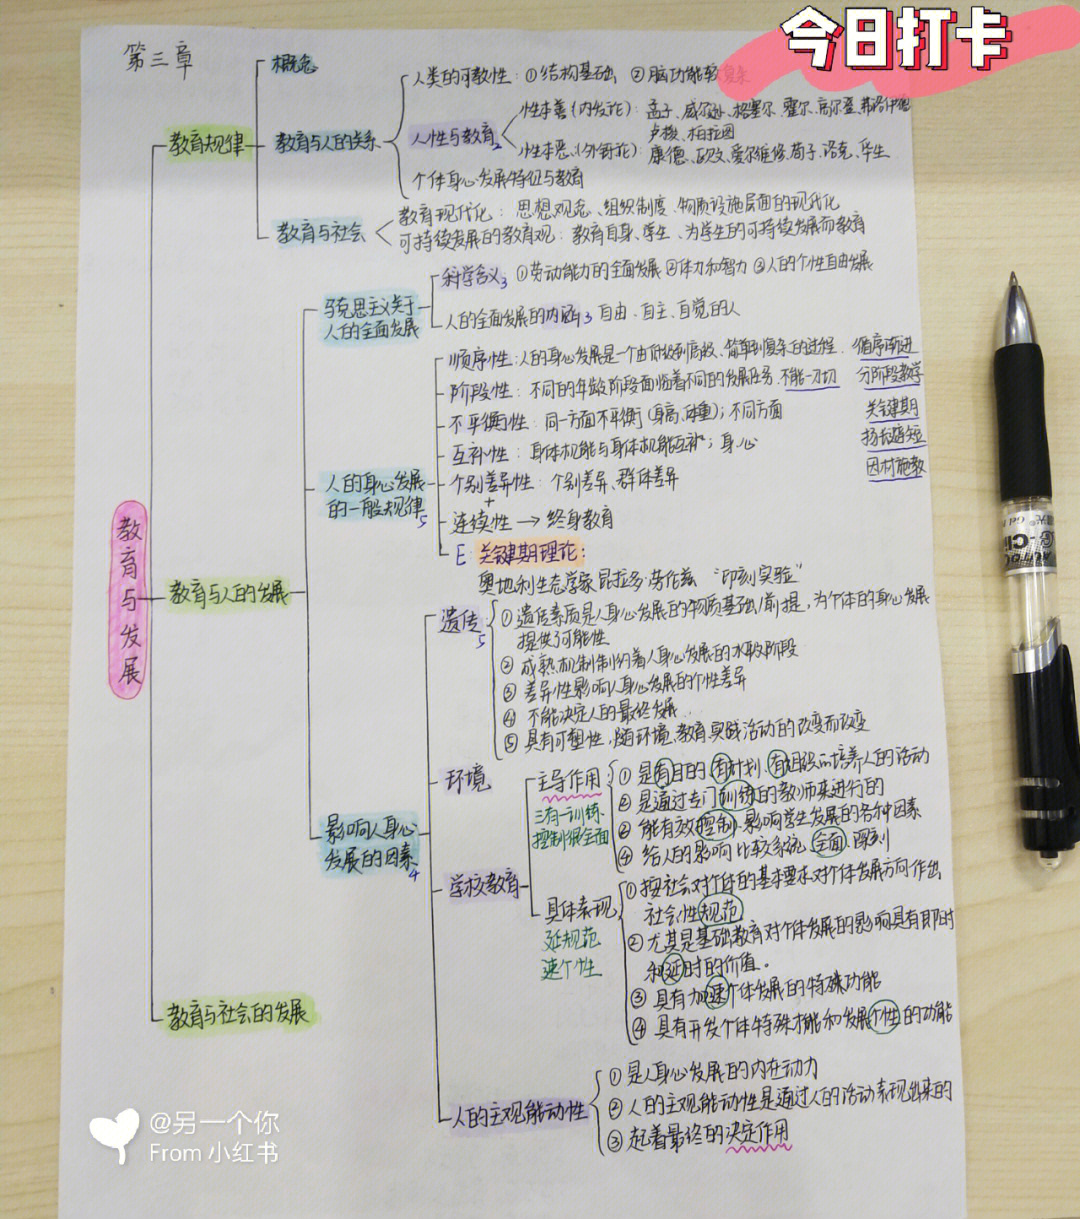 今日打卡
第三章
概念
人类的可教性：①结构基础 ②脑功能较复杂
教育规律
教育与人的关系
人性与教育2
性本善(内发论)：孟子、威尔逊、格塞尔、霍尔、高尔登、弗洛伊德
卢梭、柏拉图
性本恶(外铄论)：康德、爱尔维修、荀子、洛克、华生
个体身心发展特征与教育
教育与社会
教育现代化：思想观念、组织制度、物质设施层面的现代化
可持续发展的教育观：教育自身、学生、为学生的可持续发展而教育
马克思主义关于
人的全面发展
科学含义3 ①劳动能力的全面发展 ②体力和智力 ③人的个性自由发展
人的全面发展的内涵3 自由、自主、自觉的人
顺序性：人的身心发展是一个由低级到高级、简单到复杂的过程. 循序渐进
阶段性：不同的年龄阶段面临着不同的发展任务.不能一刀切 分阶段教学
不平衡性：同一方面不平衡(身高、体重)；不同方面 关键期
互补性：身体机能与身体机能互补；身心 扬长避短
人的身心发展
的一般规律5
个别差异性：个别差异、群体差异 因材施教
+
连续性→终身教育
E：关键期理论：
奥地利生态学家 昆拉多·劳伦兹 “印刻实验”
教育与发展
教育与人的发展
遗传5
①遗传素质是人身心发展的物质基础/前提，为个体的身心发展
提供了可能性
②成熟机制制约着人身心发展的水平及阶段
③差异性影响人身心发展的个性差异
④不能决定人的最终发展
⑤具有可塑性，随环境、教育实践活动的改变而改变
影响人身心
发展的因素4
环境
学校教育
主导作用
三有一训练
控制很全面
①是有目的、有计划、有组织的培养人的活动
②是通过专门训练的教师来进行的
②能有效控制、影响学生发展的各种因素
④给人的影响比较系统、全面、深刻
具体表现
延规范
速个性
①按社会对个体的基本要求对个体发展方向作出
社会性规范
②尤其是基础教育对个体发展的影响具有即时
和延时的价值。
③具有加速个体发展的特殊功能
④具有开发个体特殊才能和发展个性的功能
教育与社会的发展
人的主观能动性
①是人身心发展的内在动力
②人的主观能动性是通过人的活动表现出来的
③起着最终的决定作用
@另一个你
From 小红书